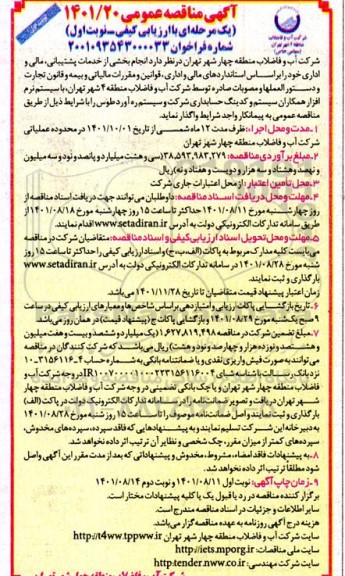 آگهی مناقصه عمومی ۱۴۰۱/۲۰
(یک مرحله‌ای با ارزیابی کیفی - نوبت اول)
شماره فراخوان ۲۰۰۱۰۹۳۵۴۳۰۰۰۰۳۳
شرکت آب و فاضلاب منطقه چهار شهر تهران در نظر دارد انجام بخشی از خدمات پشتیبانی، مالی و
اداری خود را براساس استانداردهای مالی و اداری، قوانین و مقررات مالیاتی و بیمه و قانون تجارت
و دستورالعملها و مصوبات صادره توسط شرکت آب و فاضلاب منطقه ۴ شهر تهران، با سیستم نرم
افزار همکاران سیستم و کدینگ حسابداری شرکت و سیستم ره آورد طوس را با شرایط ذیل از طریق
مناقصه عمومی به پیمانکار واجد شرایط واگذار نماید.
۱- مدت و محل اجرا: ظرف مدت ۱۲ ماه شمسی از تاریخ ۱۴۰۱/۱۰/۰۱ در محدوده عملیاتی
شرکت آب و فاضلاب منطقه چهار شهر تهران
۲- مبلغ برآوردی مناقصه: ۳۸,۵۹۳,۹۸۳,۲۷۹ (سی و هشت میلیارد و پانصد و نود و سه میلیون
و نهصد و هشتاد و سه هزار و دویست و هفتاد و نه) ریال
۳- محل تامین اعتبار: از محل اعتبارات جاری شرکت
۴- مهلت و محل دریافت اسناد مناقصه: داوطلبان می توانند جهت دریافت اسناد مناقصه از
روز چهارشنبه مورخ ۱۴۰۱/۰۸/۱۱ حداکثر تا ساعت ۱۵ روز چهارشنبه مورخ ۱۴۰۱/۰۸/۱۸ از
طریق سامانه تدارکات الکترونیکی دولت به آدرس www.setadiran.ir اقدام نمایند.
۵- مهلت و محل تحویل اسناد ارزیابی کیفی و اسناد مناقصه: متقاضیان شرکت در مناقصه
می بایست کلیه مدارک مربوط به پاکات (الف، ب، ج) و اسناد ارزیابی کیفی را حداکثر تا ساعت ۱۵ روز
شنبه مورخ ۱۴۰۱/۰۸/۲۸ در سامانه تدارکات الکترونیکی دولت به آدرس www.setadiran.ir
بارگذاری و ثبت نمایند.
زمان اعتبار پیشنهاد قیمت متقاضیان تا تاریخ ۱۴۰۱/۱۱/۲۸ می باشد.
۶- تاریخ بازگشایی پاکات ارزیابی و امتیازدهی براساس شاخص‌ها و معیارهای ارزیابی کیفی در ساعت
۹ صبح یکشنبه مورخ ۱۴۰۱/۰۸/۲۹ و بازگشایی پاکات ج (پیشنهاد قیمت) در همان روز می باشد
۷- مبلغ تضمین شرکت در مناقصه ۱,۶۲۷,۸۱۹,۴۹۸ (یک میلیارد و ششصد و بیست و هفت میلیون
و هشتصد و نوزده هزار و چهارصد و نود و هشت) ریال می باشد که شرکت کنندگان در مناقصه
می توانند به صورت فیش واریزی نقدی و یا ضمانتنامه بانکی به شماره حساب
نزد بانک در وجه شرکت آب و
فاضلاب منطقه چهار شهر تهران و یا چک بانکی تضمینی در وجه شرکت آب و فاضلاب منطقه چهار
شهر تهران دریافت و تصویر ضمانت نامه را در سامانه تدارکات الکترونیک دولت در پاکت (الف)
بارگذاری و ثبت نمایند و اصل ضمانت نامه موصوف را تا ساعت ۱۵ روز شنبه مورخ ۱۴۰۱/۰۸/۲۸
به دبیرخانه این شرکت تسلیم نمایند و به پیشنهادهایی که فاقد سپرده، سپرده‌های مخدوش،
سپرده‌های کمتر از میزان مقرر، چک شخصی و نظایر آن ترتیب اثر داده نخواهد شد.
۸- به پیشنهادات فاقد امضاء، مشروط، مخدوش و پیشنهاداتی که بعد از مدت مقرر این آگهی واصل
شود مطلقا ترتیب اثر داده نخواهد شد.
۹- زمان چاپ آگهی: نوبت اول ۱۴۰۱/۰۸/۱۱ و نوبت دوم ۱۴۰۱/۰۸/۱۴
برگزار کننده مناقصه در رد یا قبول یک یا کلیه پیشنهادات مختار است.
سایر اطلاعات و جزئیات در اسناد مناقصه مندرج است.
هزینه درج آگهی روزنامه به عهده مناقصه گزار می باشد.
سایت شرکت آب و فاضلاب منطقه چهار شهر تهران http://t4ww.tppww.ir
سایت ملی مناقصات: http://iets.mporg.ir
سایت شرکت مهندسی آب و فاضلاب کشور: http:tender.nww.co.ir